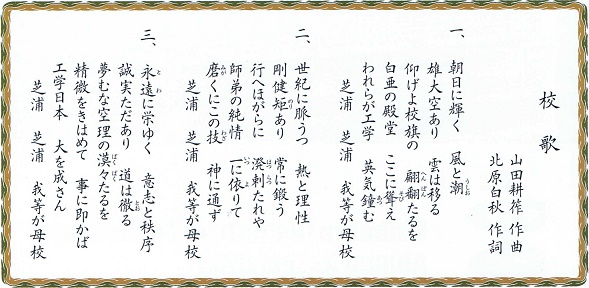 校歌
山田耕筰 作曲
北原白秋 作詞
一、朝日に輝く 風と潮
雄大空あり 雲は移る
仰げよ校旗の 翩翻たるを
白亜の殿堂 ここに聳え
われらが工学 英気鐘む
芝浦 芝浦 我等が母校
二、世紀に脈うつ 熱と理性
剛健矩あり 常に鍛う
行へほがらに 溌剌たれや
師弟の純情 一に依りて
磨くにこの技 神に通ず
芝浦 芝浦 我等が母校
三、永遠に栄ゆく 意志と秩序
誠実ただあり 道は徹る
夢むな空理の 漠々たるを
精微をきはめて 事に即かば
工学日本 大を成さん
芝浦 芝浦 我等が母校